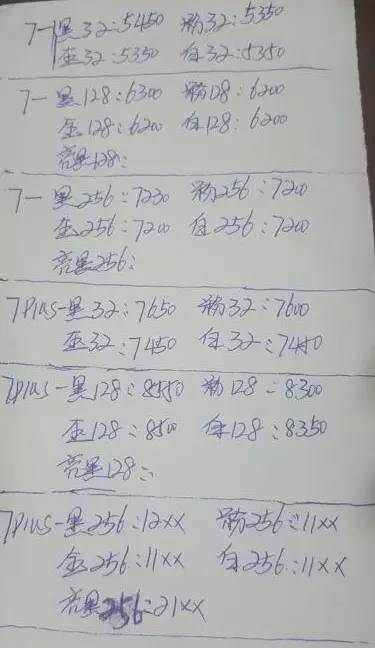 7一黑32:5450 粉32:5350
金32:5350 白32:5350
7一黑128:6300 粉128:6200
金128:6200 白128:6200
亮黑128:
7一黑256:7230 粉256:7200
金256:7200 白256:7200
亮黑256:
7Plus-黑32:7650 粉32:7600
金32:7450 白32:7450
7Plus-黑128:8550 粉128:8300
金128:8500 白128:8350
亮黑128:
7Plus-黑256:12xx 粉256:11xx
金256:11xx 白256:11xx
亮黑256:21xx